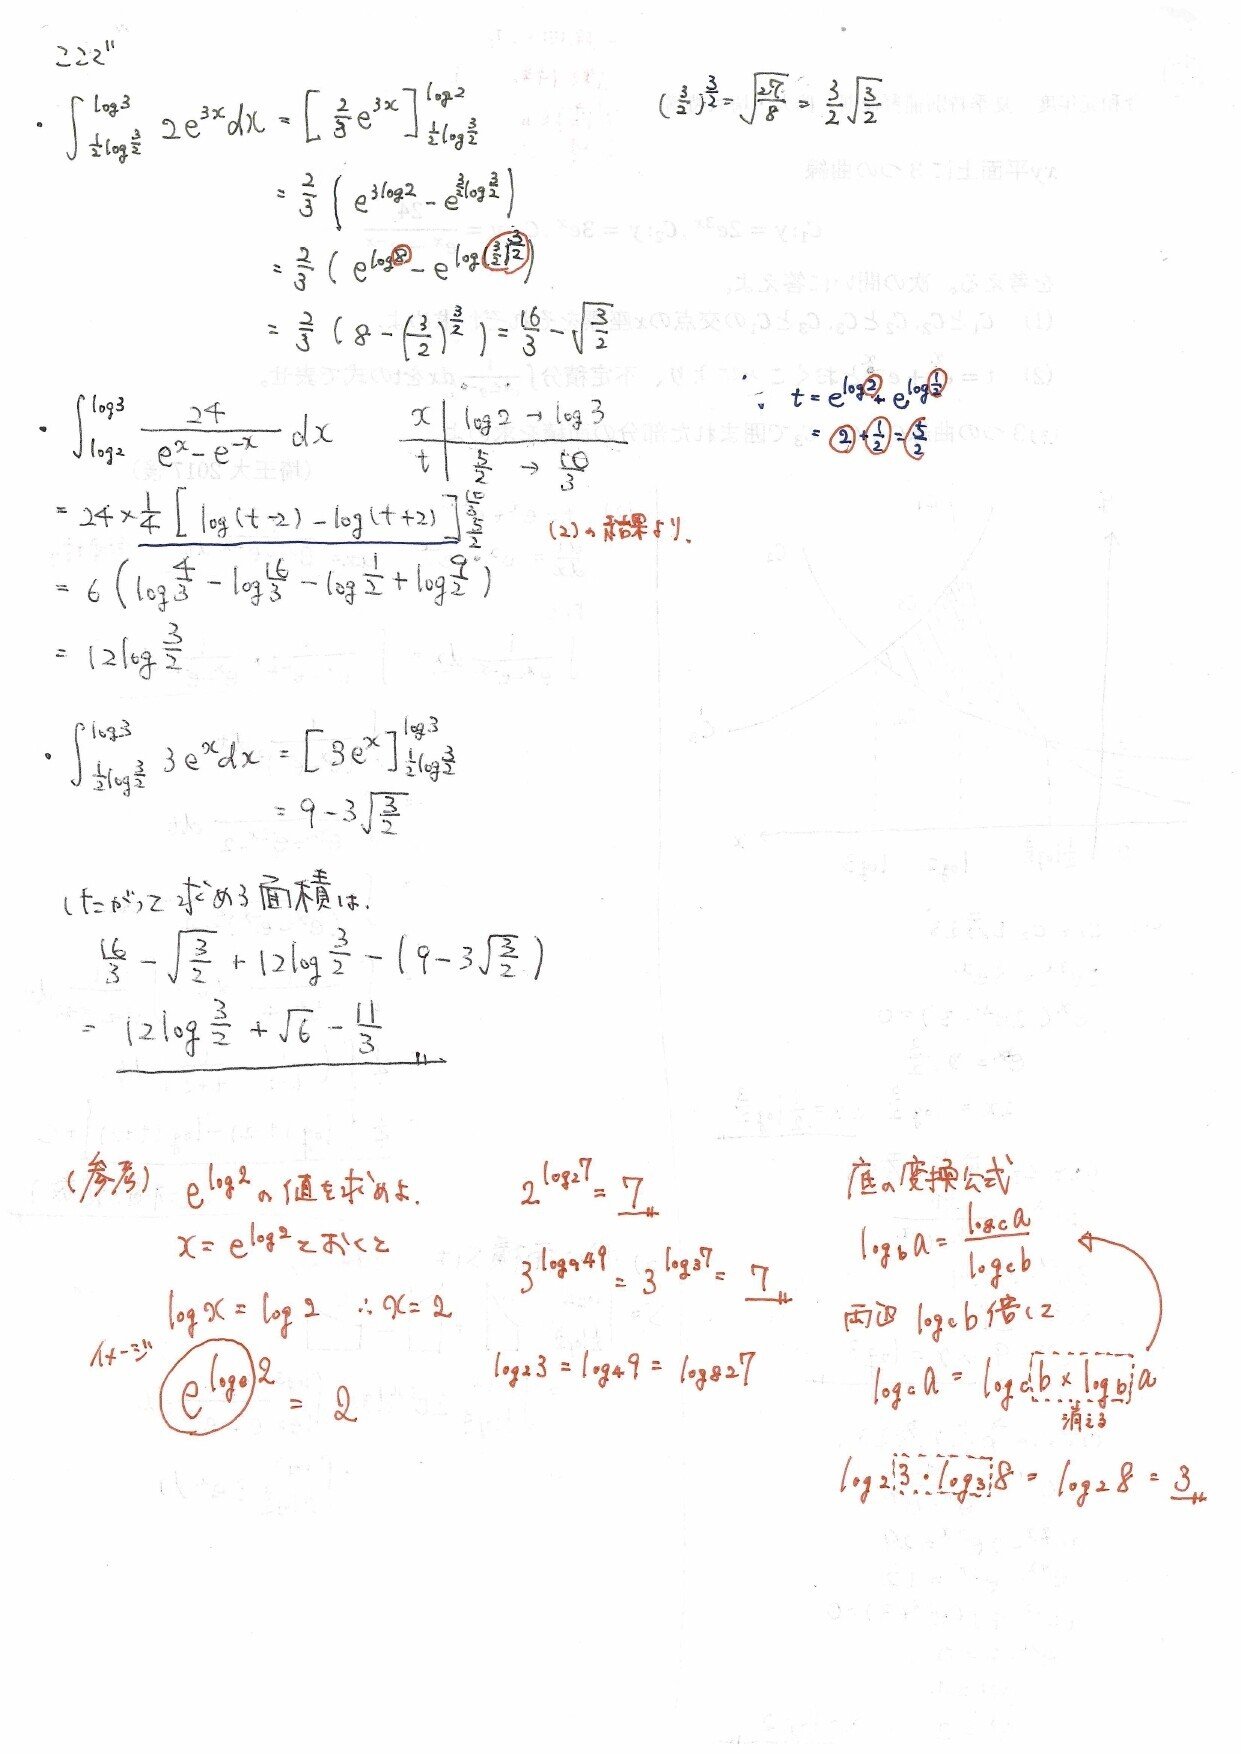 ここで
・∫_{1/2 log 3/2}^{log3} 2e^{3x}dx = [2/3 e^{3x}]_{1/2 log 3/2}^{log2}
(3/2)^{3/2} = √(27/8) = 3/2 √(3/2)
= 2/3 (e^{3log2} - e^{3/2 log 3/2})
= 2/3 (e^{log8} - e^{log(3/2)^{3/2}})
= 2/3 (8 - (3/2)^{3/2}) = 16/3 - √(3/2)
・∫_{log2}^{log3} 24/(e^x - e^{-x}) dx
x | log2 → log3
t | 5/2 → 10/3
∵ t = e^{log2} + e^{log 1/2}
= 2 + 1/2 = 5/2
= 24 × 1/4 [log(t-2) - log(t+2)]_{5/2}^{10/3}
(2)の結果より.
= 6 (log 4/3 - log 16/3 - log 1/2 + log 9/2)
= 12log 3/2
・∫_{1/2 log 3/2}^{log3} 3e^x dx = [3e^x]_{1/2 log 3/2}^{log3}
= 9 - 3√(3/2)
したがって求める面積は.
16/3 - √(3/2) + 12log 3/2 - (9 - 3√(3/2))
= 12log 3/2 + √6 - 11/3
(参考) e^{log2} の値を求めよ.
x = e^{log2} とおくと
log x = log 2 ∴ x = 2
イメージ
e^{log_e 2} = 2
2^{log_2 7} = 7
3^{log_9 49} = 3^{log_3 7} = 7
log_2 3 = log_4 9 = log_8 27
底の変換公式
log_b a = log_c a / log_c b
両辺 log_c b 倍して
log_c a = log_c b × log_b a
消える
log_2 3・log_3 8 = log_2 8 = 3